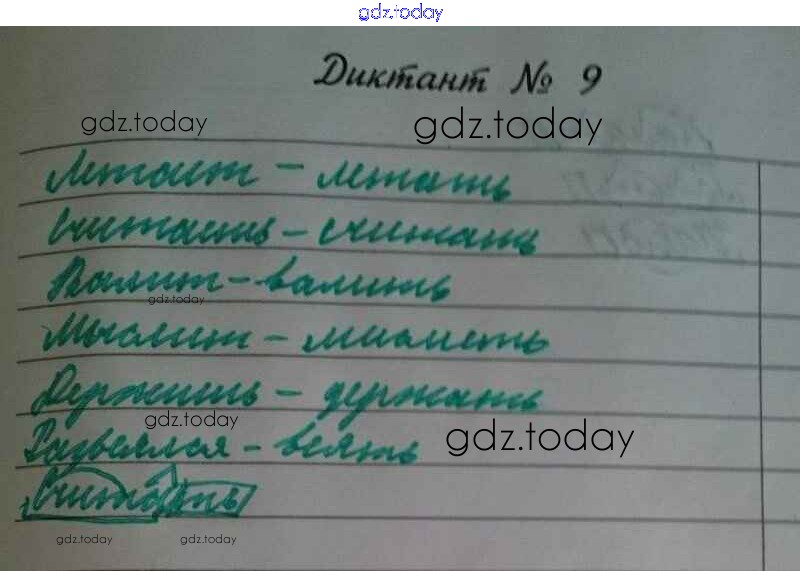 gdz.today
Диктант № 9
gdz.today gdz.today
– летать
Считаешь – считать
Валит – валить
gdz.today
Мыслит –
Держишь – держать
gdz.today
Развеялся – веять
gdz.today
Считать
gdz.today gdz.today